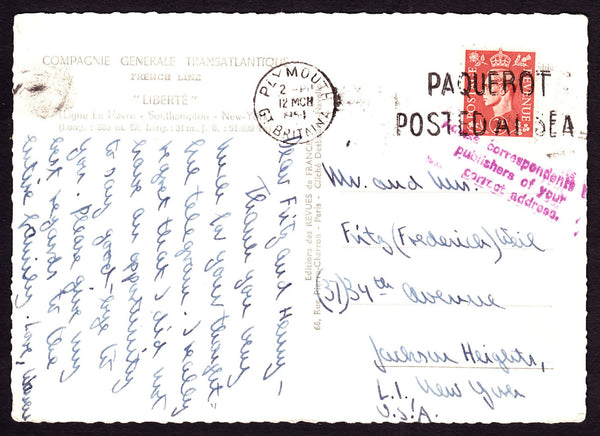 COMPAGNIE GENERALE TRANSATLANTIQUE
FRENCH LINE
"LIBERTÉ"
(Ligne Le Havre - Southampton - New-York
(Long. : 285 m. 62, Larg. : 31 m.
PLYMOUTH
12 MCH
GT. BRITAIN
PAQUEBOT
POSTED AT SEA
POSTAGE
REVENUE
correspondents
publishers of your
correct address.
Dear Fritz and Henny -
Thank you very
much for your thought-
ful telegram. I really
regret that I did not
have an opportunity
to say good-bye to
you. Please give my
best regards to the
entire family. Love,
Editions des REVUES de FRANCE
66, Rue Pierre-Charron - Paris - Cliché
Mr. and Mrs.
Fritz (Frederick) Weil
(37) 34th Avenue
Jackson Heights,
L.I. New York
U.S.A.